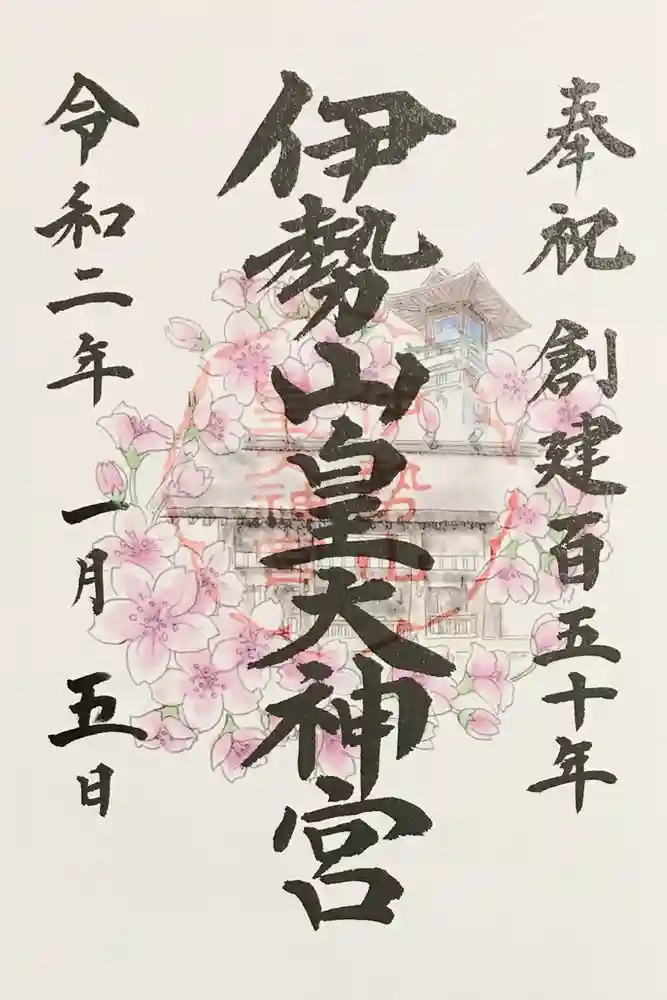 奉祝 創建百五十年
伊勢山皇大神宮
令和二年 一月 五日